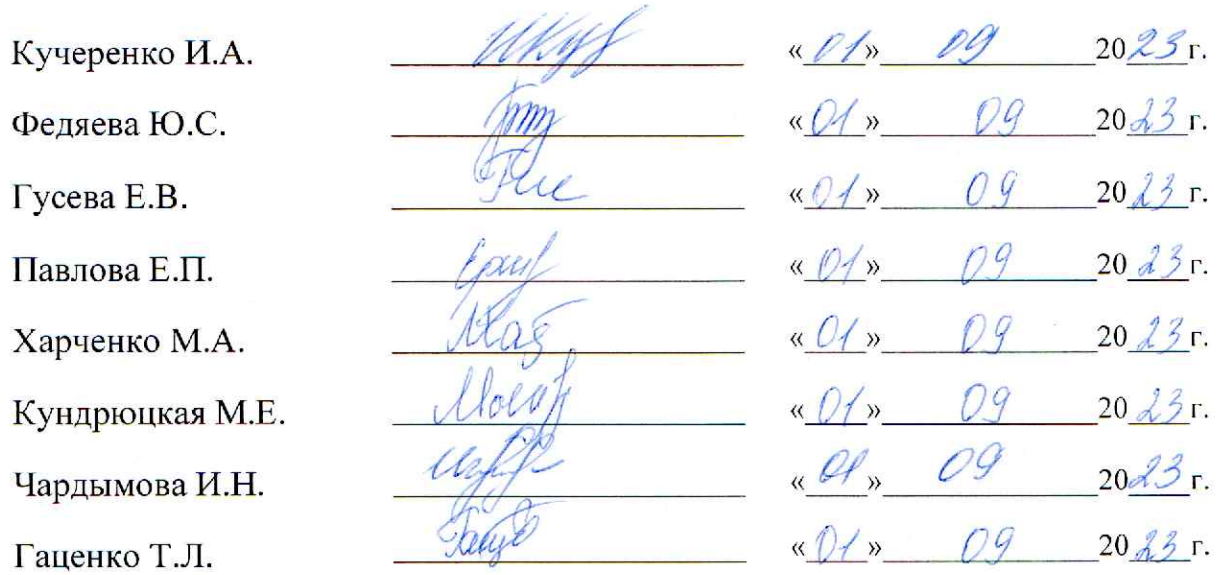 Кучеренко И.А. «01» 09 2023 г.
Федяева Ю.С. «01» 09 2023 г.
Гусева Е.В. «01» 09 2023 г.
Павлова Е.П. «01» 09 2023 г.
Харченко М.А. «01» 09 2023 г.
Кундрюцкая М.Е. «01» 09 2023 г.
Чардымова И.Н. «01» 09 2023 г.
Гаценко Т.Л. «01» 09 2023 г.